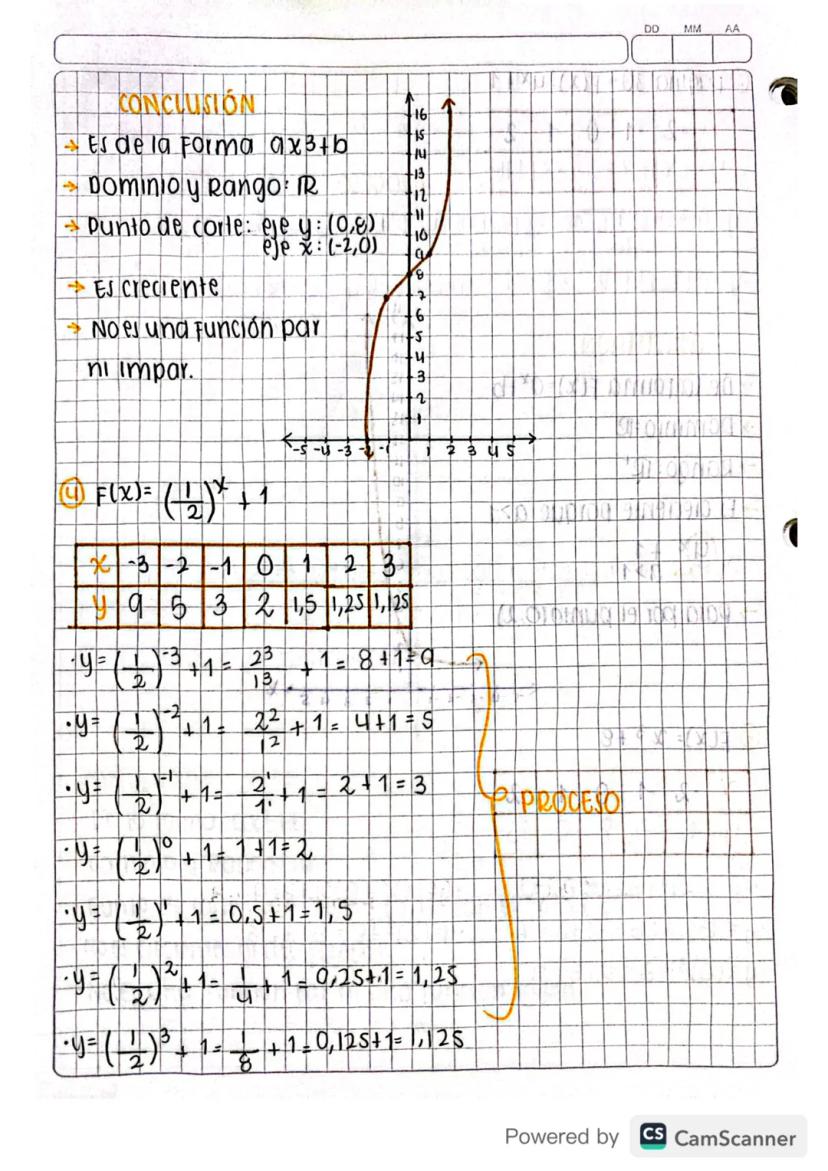 DD MM AA
CONCLUSIÓN
→ Es de la forma ax3+b
→ Dominio y Rango: ℝ
→ Punto de corte: eje y: (0,8)
eje x: (-2,0)
→ Es creciente
→ No es una función par
ni impar.
16
15
14
13
12
11
10
9
8
7
6
5
4
3
2
1
-5 -4 -3 -2 -1 1 2 3 4 5
④ F(x)= (1/2)^x + 1
x -3 -2 -1 0 1 2 3
y 9 5 3 2 1,5 1,25 1,125
·y= (1/2)^-3 +1= 2^3/1^3 +1= 8+1=9
·y= (1/2)^-2 +1= 2^2/1^2 +1= 4+1=5
·y= (1/2)^-1 +1= 2^1/1^1 +1= 2+1=3
PROCESO
·y= (1/2)^0 +1= 1+1=2
·y= (1/2)^1 +1= 0,5+1=1,5
·y= (1/2)^2 +1= 1/4 + 1= 0,25+1= 1,25
·y= (1/2)^3 + 1= 1/8 +1= 0,125+1= 1,125
Powered by CS CamScanner